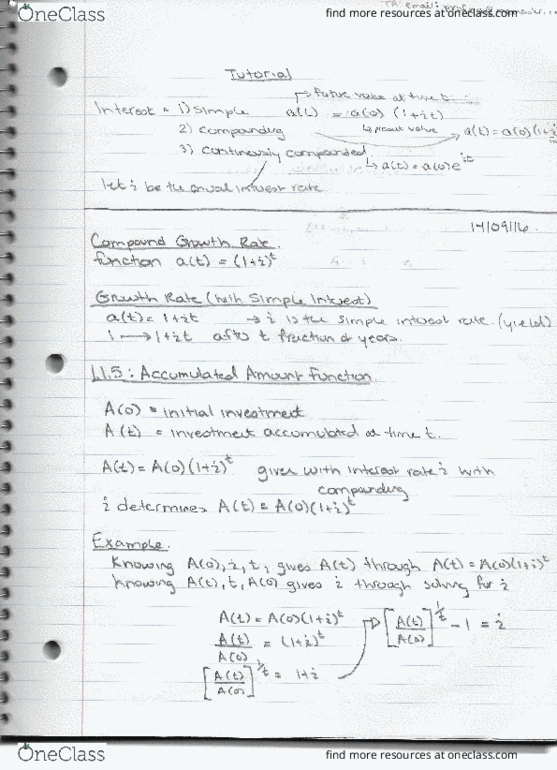 OneClass
find more resources at oneclass.com
TA email:
Tutorial
→ future value at time t
Interest = 1) Simple a(t) = a(0) (1+it)
2) Compounding ↳ present value → a(t) = a(0)(1+i
3) Continously compounded ↳ a(t) = a(0)e^it
let i be the annual interest rate
14/09/16
Compound Growth Rate.
function a(t) = (1+i)^t
Growth Rate (with Simple Interest)
a(t) = 1+it → i is the simple interest rate. (yield)
1 → 1+it after t fraction of years.
L1.5: Accumulated Amount Function.
A(0) = initial investment
A(t) = investment accumulated at time t.
A(t) = A(0)(1+i)^t given with interest rate i with
compounding
i determines A(t) = A(0)(1+i)^t
Example.
Knowing A(0), i, t, gives A(t) through A(t) = A(0)(1+i)^t
Knowing A(t), t, A(0) gives i through solving for i
A(t) = A(0)(1+i)^t
A(t)/A(0) = (1+i)^t
[A(t)/A(0)]^1/t = 1+i → [A(t)/A(0)]^1/t - 1 = i
OneClass
find more resources at oneclass.com